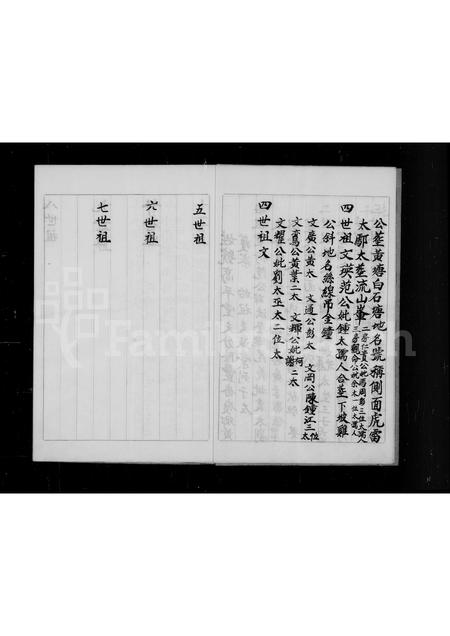 公塟黃塘白石塘地名號稱側面虎雷
太鄢太塟流山峯
四世祖文瑛范公妣鍾太孺人合塟下坡雞
公斜地名絲線吊金鐘
文廣公黃太 文通公彭太 文岡公陳鍾江三位太
文鳥公黃葉二太 文輝公妣何謝二太
文耀公妣劉太巫太二位太
四世祖文
五世祖
六世祖
七世祖